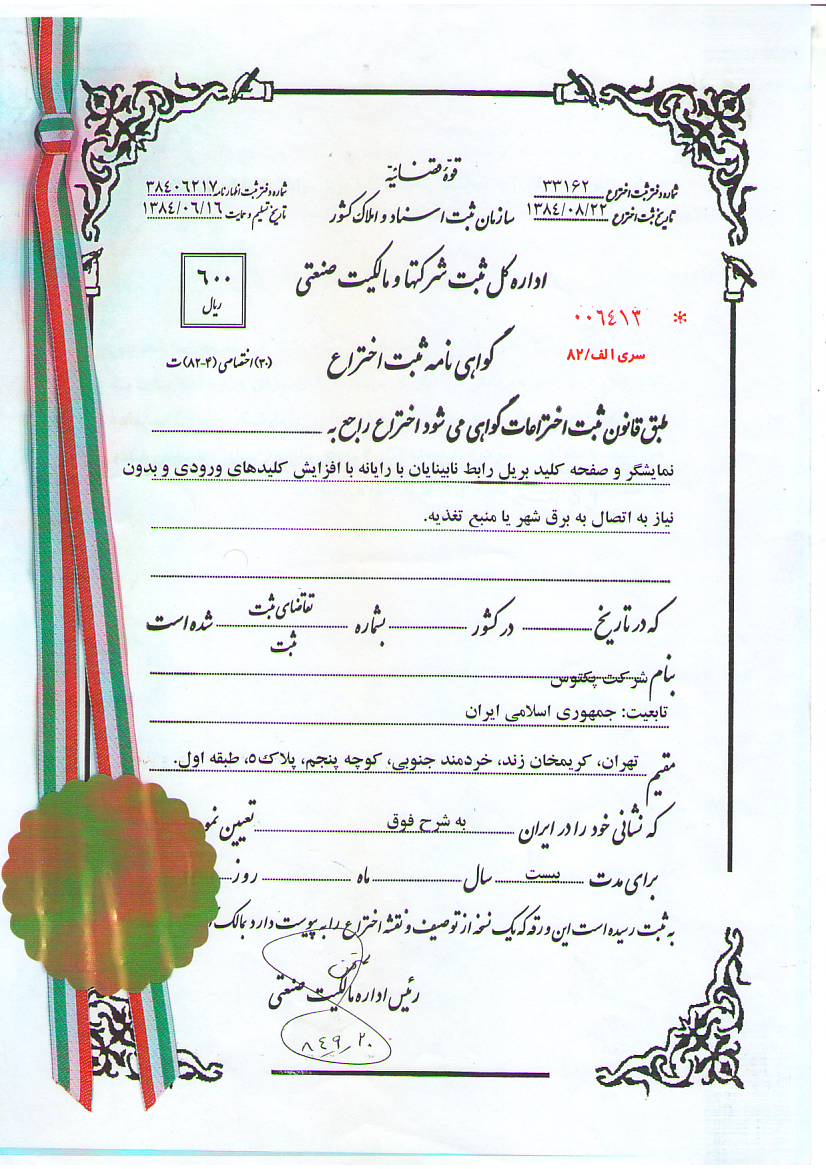 قوّه قضائیّه
شماره دفتر ثبت اختراع ۳۳۱۶۲
شماره دفتر ثبت اظهارنامه ۳۸۴۰۶۲۱۷
سازمان ثبت اسناد و املاک کشور
تاریخ ثبت اختراع ۱۳۸۴/۰۸/۲۲
تاریخ تسلیم و حمایت ۱۳۸۴/۰۶/۱۶
اداره کل ثبت شرکتها و مالکیت صنعتی
۶۰۰
ریال
* ۰۰۶۴۱۳
سری الف/۸۲
گواهی نامه ثبت اختراع
(۳۰) اختصاصی (۴-۸۲) ت
طبق قانون ثبت اختراعات گواهی می شود اختراع راجع به
نمایشگر و صفحه کلید بریل رابط نابینایان با رایانه با افزایش کلیدهای ورودی و بدون
نیاز به اتصال به برق شهر یا منبع تغذیه.
که در تاریخ در کشور بشماره تقاضای ثبت شده است
ثبت
بنام شرکت پکتوس
تابعیت: جمهوری اسلامی ایران
مقیم تهران، کریمخان زند، خردمند جنوبی، کوچه پنجم، پلاک۵، طبقه اول.
که نشانی خود را در ایران به شرح فوق تعیین نمو
برای مدت بیست سال ماه روز
به ثبت رسیده است این ورقه که یک نسخه از توصیف و نقشه اختراع را به پیوست دارد بمالک
رئیس اداره مالکیت صنعتی
۸۴٫۹٫۲۰